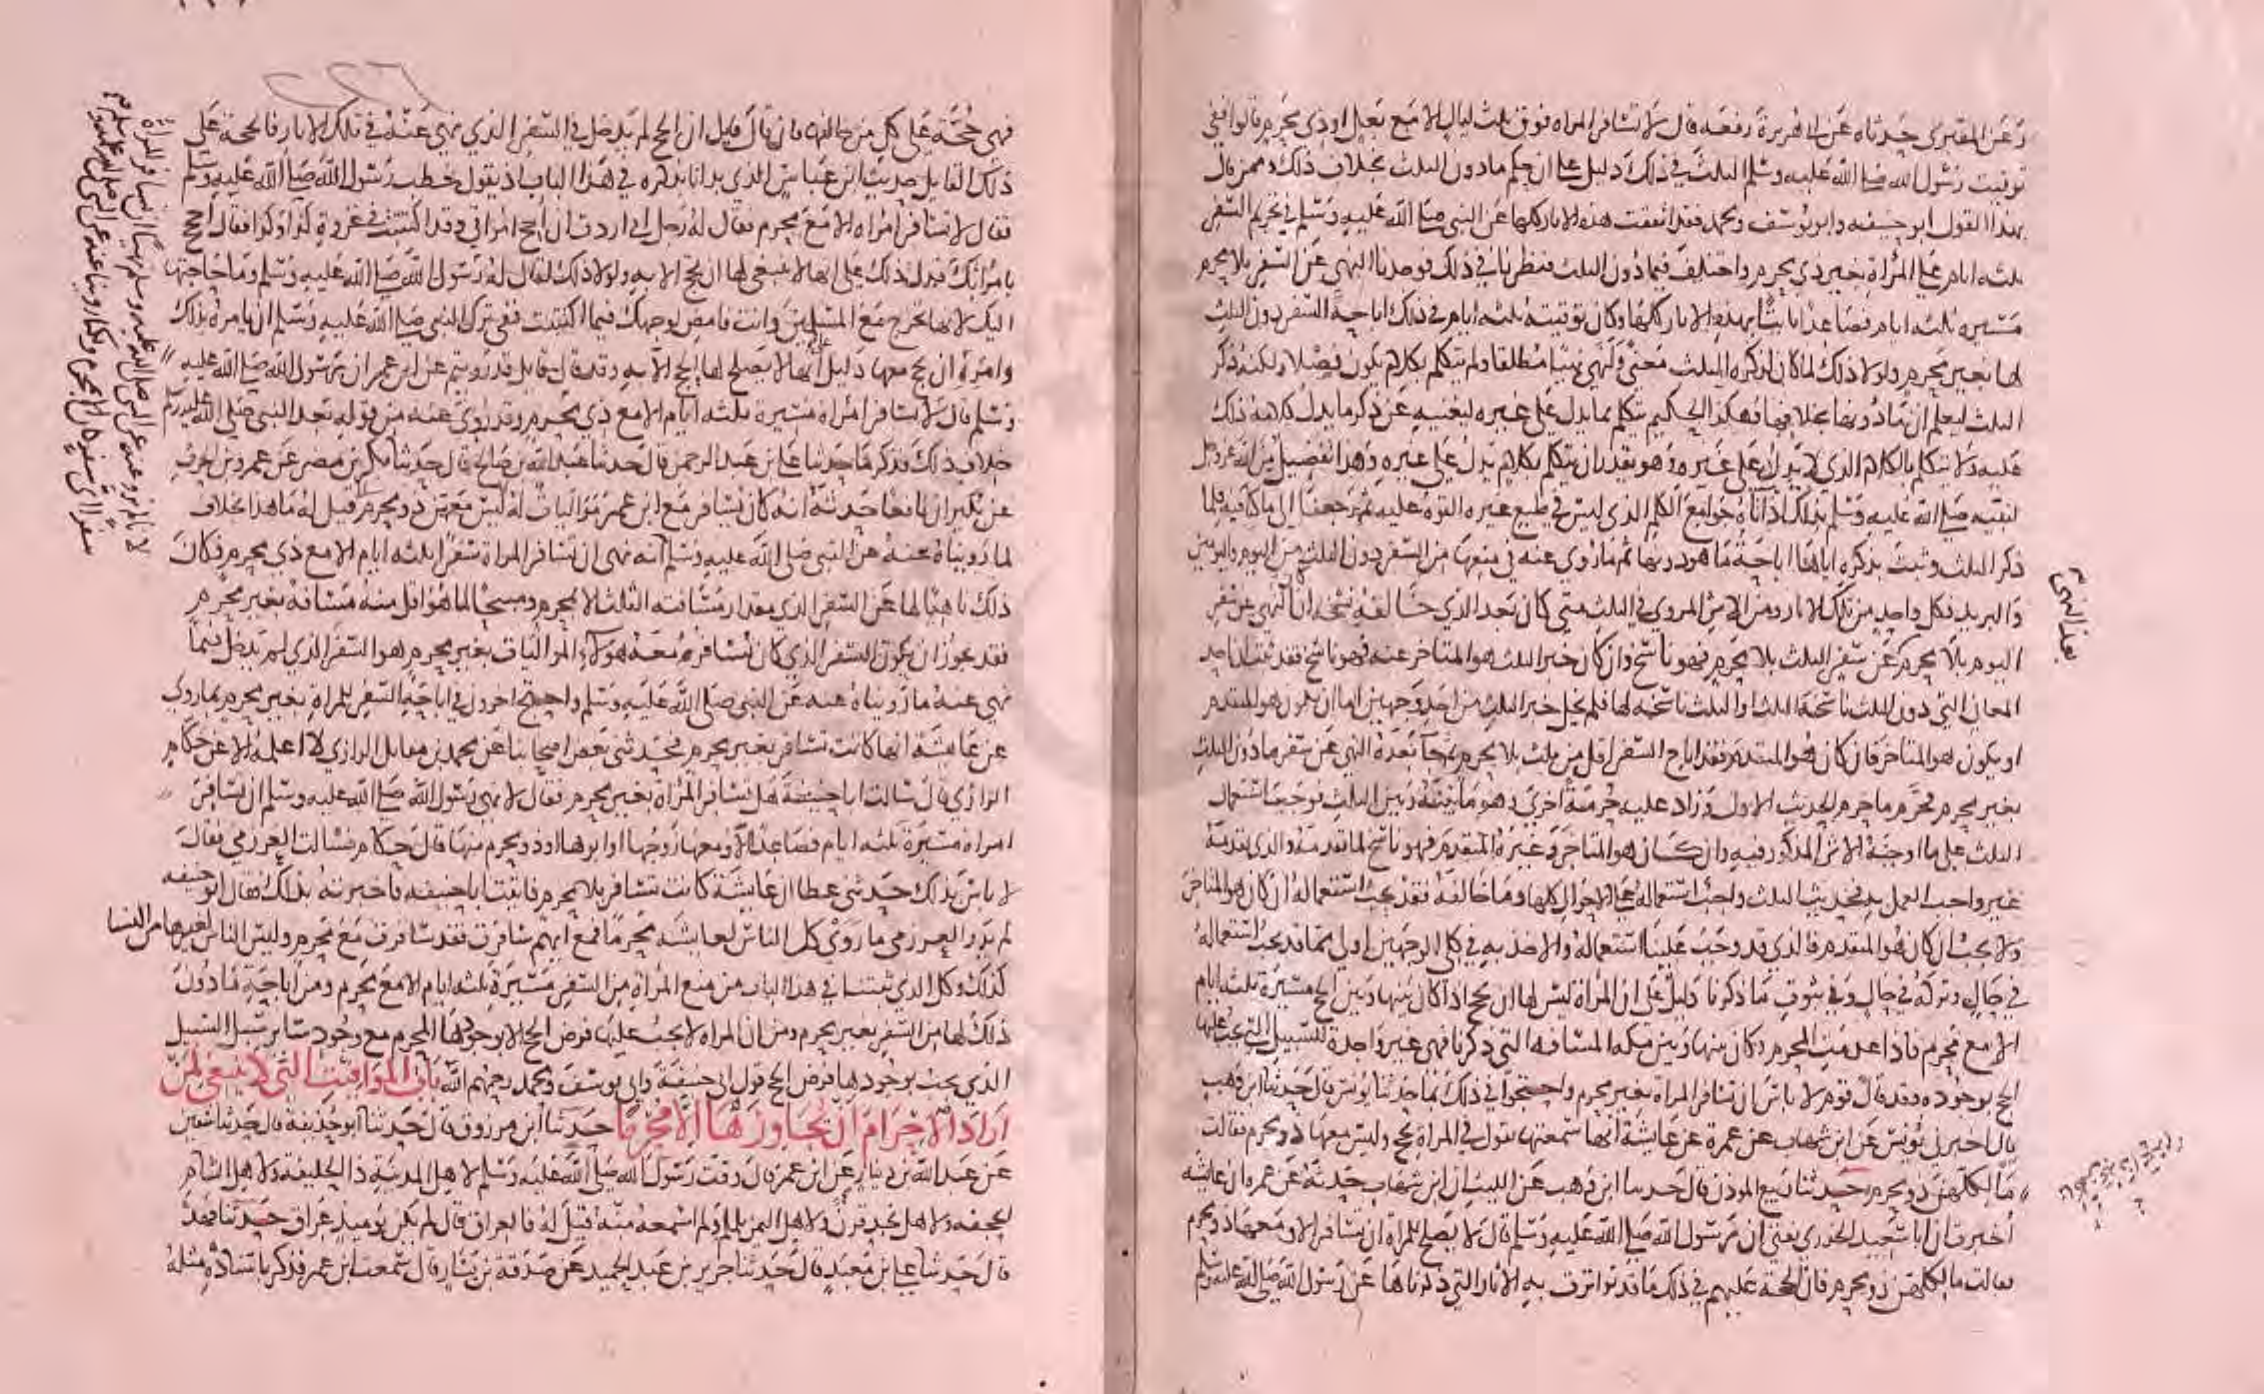 عن المقبري حدثاه عن ابي هريرة رفعه قال لا تسافر المراه فوق ثلث ليال الا مع بعل او ذي محرم قالوا ففي
توقيت رسول الله صلى الله عليه وسلم الثلث في ذلك دليل على ان حكم مادون الثلث بخلاف ذلك وممن قال
بهذا القول ابو حنيفه وابو يوسف ومحمد فقد اتفقت هذه الاثار كلها عن النبي صلى الله عليه وسلم في تحريم السفر
ثلثه ايام على المراة بغير ذي محرم واختلف فيما دون الثلث فنظرنا في ذلك فوجدنا النهي عن السفر بلا محرم
مسيره ثلثه ايام فصاعدا ثابتا بهذه الاثار كلها وكان توقيته ثلثه ايام في ذلك اباحة السفر دون الثلث
لها بغير محرم ولولا ذلك لما كان لذكره الثلث معنى ولنهى نهيا مطلقا ولم يتكلم بكلام يكون فضلا ولكنه ذكر
الثلث ليعلم ان مادونها بخلافها فهكذا الحكيم يتكلم بما يدل على غيره ليغنيه عن ذكر ما يدل كلامه ذلك
عليه ولا يتكلم بالكلام الذي لا يدل على غيره وهو يقدر ان يتكلم بكلام يدل على غيره وهذا تفضيل من الله عز وجل
لنبيه صلى الله عليه وسلم بذلك اذ آتاه جوامع الكلم الذي ليس في طبع غيره القوة عليه ثم رجعنا الى ما كنا فيه فلما
ذكر الثلث وثبت بذكره اياها اباحة ما هو دونها ثم ما روي عنه في منعها من السفر دون الثلث من اليوم واليومين
والبريد فكل واحد من تلك الاثار ومن الاثر المروي في الثلث متى كان بعد الذي خالفه نسخه ان كان النهي عن سفر
اليوم بلا محرم عن سفر الثلث بلا محرم فهو ناسخ وان كان خبر الثلث هو المتاخر عنه فهو ناسخ فقد ثبت ان احد
المعاني التي دون الثلث ناسخة للثلث او الثلث ناسخه لها فلم يخل خبر الثلث من احد وجهين اما ان يكون هو المتقدم
او يكون هو المتاخر فان كان هو المتقدم فقد اباح السفر اقل من ثلث بلا محرم ثم جا بعده النهي عن سفر مادون الثلث
بغير محرم فحرم ما حرم الحديث الاول وزاد عليه حرمة اخرى وهو ما بينه وبين الثلث فوجب استعمال
الثلث على ما اوجبه الاثر المذكور فيه وان كان هو المتاخر وغيره المتقدم فهو ناسخ لما تقدمه والذي تقدمه
غير واجب العمل به فحديث الثلث واجب استعماله على الاحوال كلها وما خالفه فقد يجب استعماله ان كان هو المتاخر
ولا يجب ان كان هو المتقدم فالذي قد وجب علينا استعماله والاخذ به في كلى الوجهين اولى مما قد يجب استعماله
في حال وتركه في حال وفي ثبوت ما ذكرنا دليل على ان المراة ليس لها ان تحج اذا كان بينها وبين الحج مسيرة ثلثه ايام
الا مع محرم فاذا عدمت المحرم وكان بينها وبين مكه المسافه التي ذكرنا فهي غير واجدة للسبيل الذي يجب عليها
الحج بوجوده وقد قال قوم لا باس ان تسافر المراة بغير محرم واحتجوا في ذلك بما حدثنا يونس قال حدثنا ابن وهب
قال اخبرني يونس عن ابن شهاب عن عمرة عن عايشة انها سمعتها تقول في المراة تحج وليس معها ذو محرم فقالت
ما لكلهن ذو محرم حدثنا ربيع الموذن قال حدثنا ابن وهب عن الليث ان ابن شهاب حدثه عن عمره ان عايشه
اخبرت ان ابا سعيد الخدري يفتي ان رسول الله صلى الله عليه وسلم قال لا يصلح للمراة ان تسافر الا ومعها ذو محرم
فقالت ما لكلهن ذو محرم فان الحجة عليهم في ذلك ما قد تواترت به الاثار التي ذكرناها عن رسول الله صلى الله عليه وسلم
بعد الذي
فهي حجة على كل من خالفها فان قال قايل ان الحج لم يدخل في السفر الذي نهى عنه في تلك الاثار فالحجة على
ذلك القايل حديث ابن عباس الذي بدانا بذكره في هذا الباب اذ يقول خطب رسول الله صلى الله عليه وسلم
فقال لا تسافر امراه الا مع محرم فقال له رجل اني اردت ان احج بامراتي وقد اكتتبت في غزوة كذا وكذا فقال احجج
بامراتك فدل ذلك على انها لا ينبغي لها ان تحج الا به ولولا ذلك لقال له رسول الله صلى الله عليه وسلم وما حاجتها
اليك لانها تخرج مع المسلمين وانت فامض لوجهك فيما اكتتبت ففي ترك النبي صلى الله عليه وسلم ان يامره بذلك
وامره ان يحج معها دليل على انها لا يصلح لها الحج الا به وقد قال قايل قد رويتم عن ابن عمر ان رسول الله صلى الله عليه
وسلم قال لا تسافر امراه مسيرة ثلثه ايام الا مع ذي محرم وقد روي عنه من قوله بعد النبي صلى الله عليه وسلم
خلاف ذلك فذكر ما حدثنا علي بن عبد الرحمن قال حدثنا عبد الله بن صالح قال حدثنا بكر بن مضر عن عمرو بن الحرث
عن بكير ان نافعا حدثه انه كان يسافر مع ابن عمر مواليات له ليس معهن ذو محرم قيل له ما هذا بخلاف
لما رويناه عنه عن النبي صلى الله عليه وسلم انه نهى ان تسافر المراة سفرا ثلثه ايام الا مع ذي محرم فكان
ذلك ناهيا لها عن السفر الذي مقدار مسافته الثلث الا بمحرم ومبيحا لما هو اقل منه مسافة بغير محرم
فقد يجوز ان يكون السفر الذي كان يسافره معه هؤلاء المواليات بغير محرم هو السفر الذي لم يدخل فيما
نهى عنه ما رويناه عنه عن النبي صلى الله عليه وسلم واحتج اخرون في اباحة السفر للمراة بغير محرم بما روي
عن عايشة انها كانت تسافر بغير محرم فحدثني بعض اصحابنا عن محمد بن مقاتل الرازي لا اعلمه الا عن حكام
الرازي قال سالت ابا حنيفة هل تسافر المراة بغير محرم فقال لا نهى رسول الله صلى الله عليه وسلم ان تسافر
امراة مسيرة ثلثه ايام فصاعدا الا ومعها زوجها او ابوها او ذو محرم منها قال حكام فسالت العرزمي فقال
لا باس بذلك حدثني عطا ان عايشة كانت تسافر بلا محرم فاتيت ابا حنيفه فاخبرته بذلك فقال ابو حنيفه
لم يدر العرزمي ما روى كل الناس لعايشة محرم فمع ايهم سافرت فقد سافرت مع محرم وليس الناس لغيرها من النسا
كذلك وكل الذي ثبتنا في هذا الباب من منع المراة من السفر مسيرة ثلثه ايام الا مع محرم ومن اباحة مادون
ذلك لها من السفر بغير محرم ومن ان المراه لا يجب عليها فرض الحج الا بوجودها المحرم مع وجود سائر سبل السبيل
الذي يجب بوجودها فرض الحج قول ابي حنيفة وابي يوسف ومحمد رحمهم الله باب المواقيت التي لا ينبغي لمن
اراد الاحرام ان يجاوزها الا محرما حدثنا ابن مرزوق قال حدثنا ابو حذيفة قال حدثنا سفين
عن عبد الله بن دينار عن ابن عمر قال وقت رسول الله صلى الله عليه وسلم لاهل المدينة ذا الحليفة ولاهل الشام
الجحفه ولاهل نجد قرن ولاهل اليمن يلملم ولم اسمعه منه قيل له فالعراق قال لم يكن يوميذ عراق حدثنا فهد
قال حدثنا علي بن معبد قال حدثنا جرير بن عبد الحميد عن صدقة بن يسار قال سمعت ابن عمر فذكر باسناده مثله